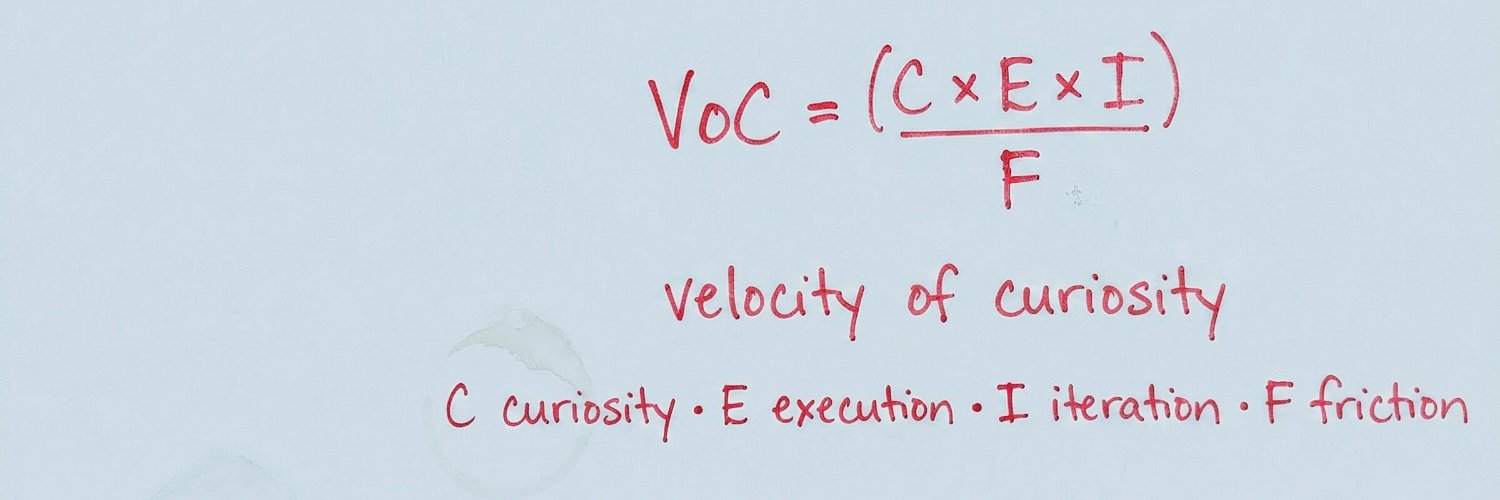 VoC = (C × E × I)
F
velocity of curiosity
C curiosity · E execution · I iteration · F friction